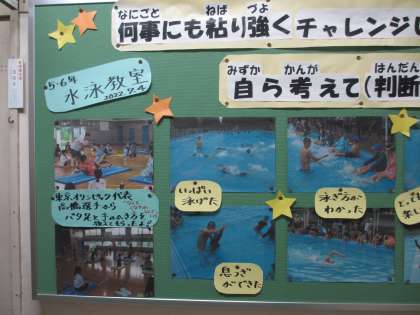 なにごと ねば づよ
何事にも粘り強くチャレンジ
みずか かんが はんだん
自ら考えて(判断
5・6年
水泳教室
2022.7.4
東京オリンピック代表
バタ足と手のかき方を
教えてもらったよ♪
いっぱい
泳げた
泳ぎ方が
わかった
息つぎ
ができた